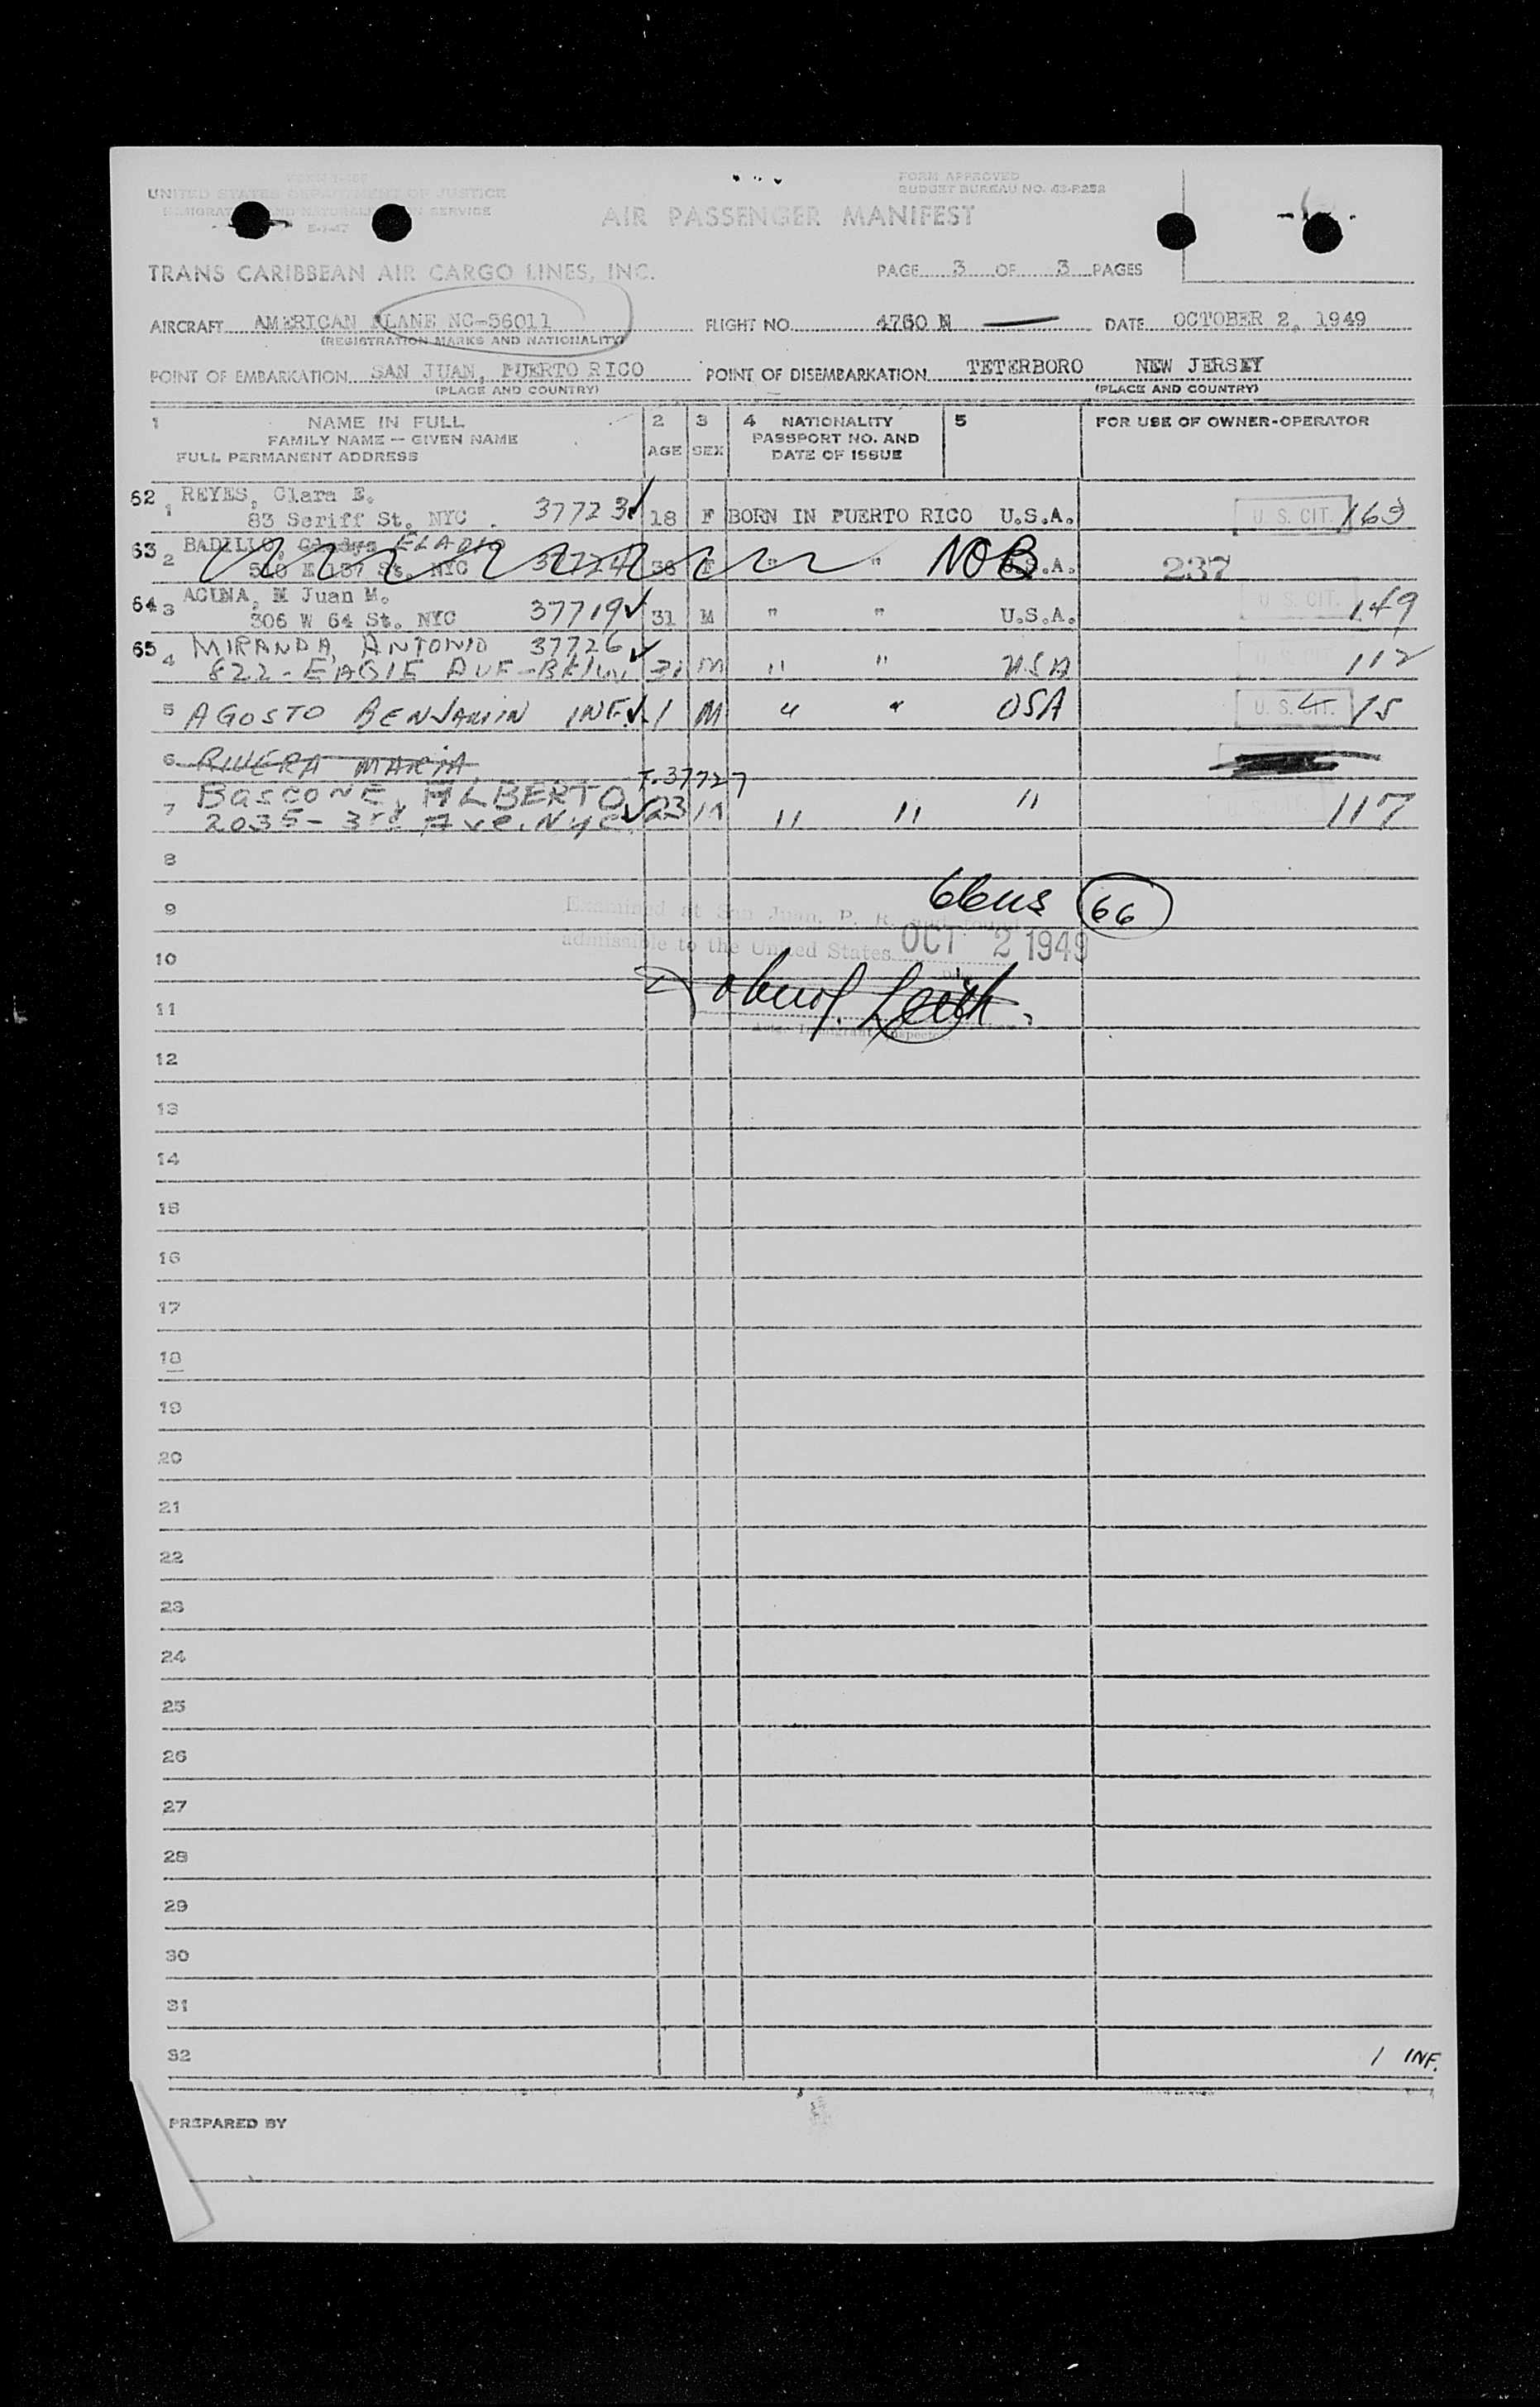 FORM I-466
UNITED STATES DEPARTMENT OF JUSTICE
IMMIGRATION AND NATURALIZATION SERVICE
FORM APPROVED
BUDGET BUREAU NO. 43-R252
AIR PASSENGER MANIFEST
TRANS CARIBBEAN AIR CARGO LINES, INC.
PAGE 3 OF 3 PAGES
AIRCRAFT AMERICAN PLANE NC-56011 FLIGHT NO. 4760 N DATE OCTOBER 2, 1949
(REGISTRATION MARKS AND NATIONALITY)
POINT OF EMBARKATION SAN JUAN, PUERTO RICO POINT OF DISEMBARKATION TETERBORO NEW JERSEY
(PLACE AND COUNTRY) (PLACE AND COUNTRY)
1 NAME IN FULL 2 3 4 NATIONALITY 5 FOR USE OF OWNER-OPERATOR
FAMILY NAME — GIVEN NAME AGE SEX PASSPORT NO. AND
FULL PERMANENT ADDRESS DATE OF ISSUE
62 1 REYES, Clara E.
83 Seriff St. NYC . 37723 18 F BORN IN PUERTO RICO U.S.A. U. S. CIT. 163
63 2 BADILLO, Gladys ELADIO
510 E 137 St. NYC 37724 36 F " " NOB U.S.A. 237
64 3 ACUNA, M Juan M.
306 W 64 St. NYC 37719 31 M " " U.S.A. U. S. CIT. 149
65 4 MIRANDA, ANTONIO 37726
822 - EAGLE AVE - BKLYN M " " USA U. S. CIT. 112
5 AGOSTO BENJAMIN INF. 1 M " " USA U. S. CIT. 4 15
6 RIVERA MARIA
T-37727
7 BASCONE, ALBERTO
2035 - 3rd Ave. NYC 23 M " " " 117
8
66 us 66
9
Examined at San Juan, P. R. and found
admissible to the United States OCT 2 1949
10
11
Immigrant Inspector
12
13
14
15
16
17
18
19
20
21
22
23
24
25
26
27
28
29
30
31
32 1 INF.
PREPARED BY